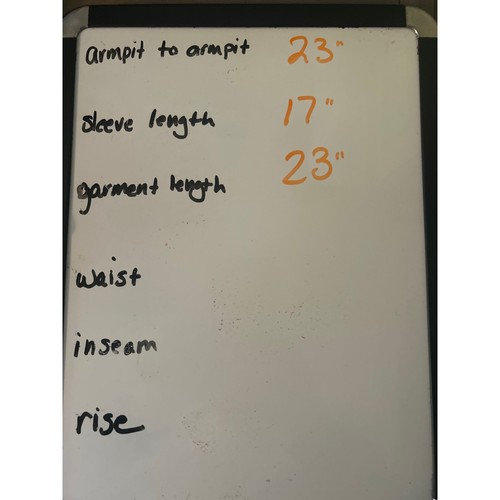 armpit to armpit 23"
sleeve length 17"
garment length 23"
waist
inseam
rise